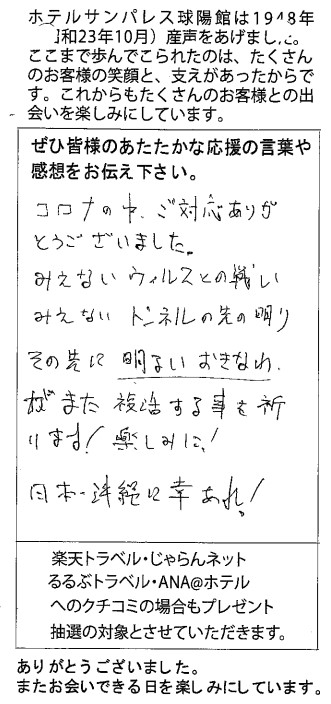 ホテルサンパレス球陽館は1948年
和23年10月）産声をあげました。
ここまで歩んでこられたのは、たくさん
のお客様の笑顔と、支えがあったからで
す。これからもたくさんのお客様との出
会いを楽しみにしています。
ぜひ皆様のあたたかな応援の言葉や
感想をお伝え下さい。
コロナの中、ご対応ありが
とうございました。
みえないウィルスとの戦い
みえないトンネルの先の明り
その先に明るいおきなわ、
がまた復活する事を祈
ります！楽しみに！
日本一沖縄に幸あれ！
楽天トラベル・じゃらんネット
るるぶトラベル・ANA@ホテル
へのクチコミの場合もプレゼント
抽選の対象とさせていただきます。
ありがとうございました。
またお会いできる日を楽しみにしています。